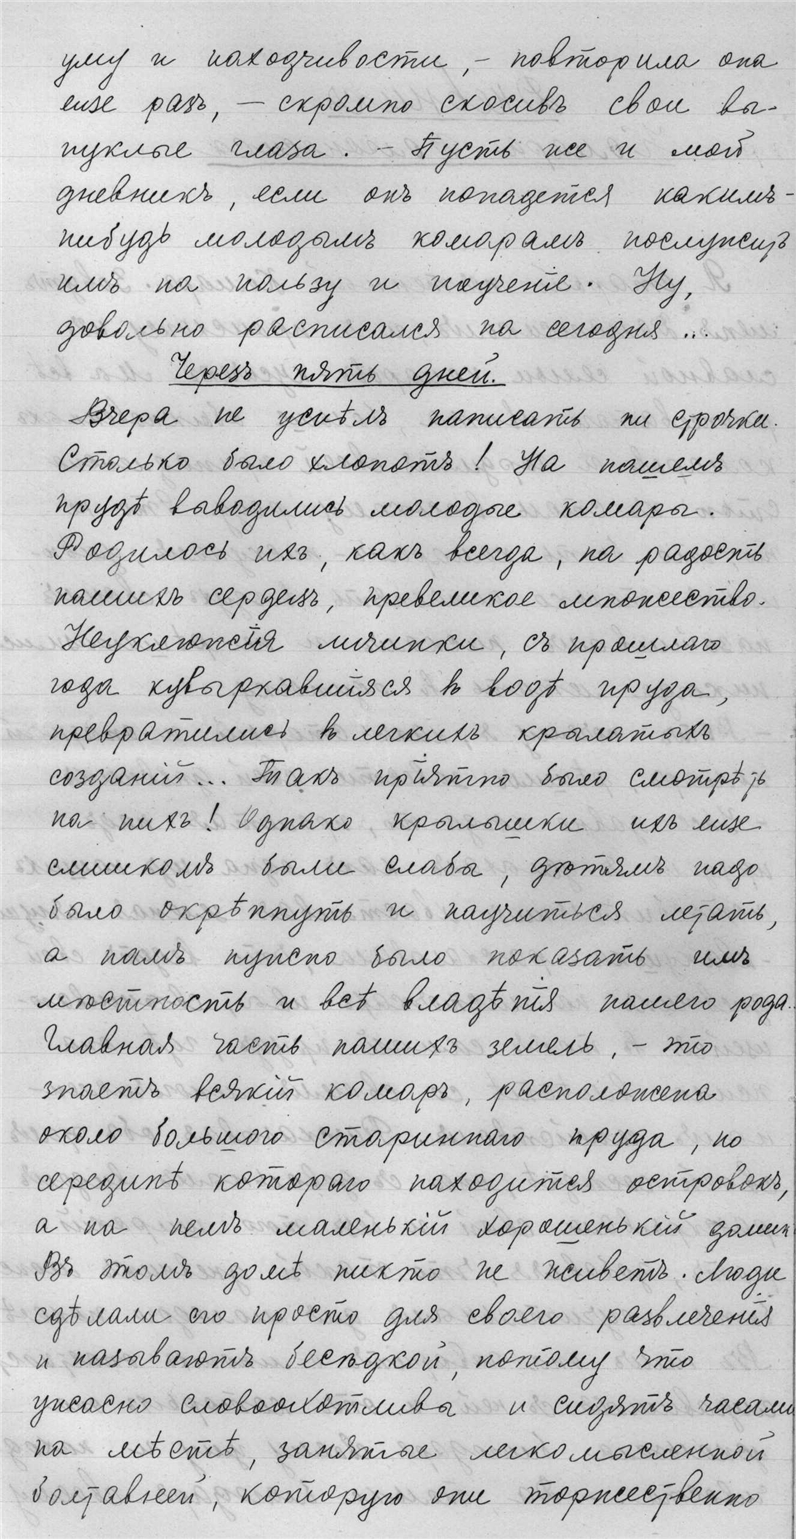 уму и находчивости, – повторила она
еще разъ, – скромно скосивъ свои вы-
пуклые глаза. – Пусть же и мой
дневникъ, если онъ попадется какимъ-
нибудь молодымъ комарамъ послужитъ
имъ на пользу и поученіе. Ну,
довольно расписался на сегодня...
Черезъ пять дней.
Вчера не успѣлъ написать ни строчки.
Столько было хлопотъ! На нашемъ
прудѣ выводились молодые комары.
Родилось ихъ, какъ всегда, на радость
нашихъ сердецъ, превеликое множество.
Неуклюжія личинки, съ прошлаго
года кувыркавшіяся в водѣ пруда,
превратились в легкихъ крылатыхъ
созданій... Такъ пріятно было смотрѣть
на нихъ! Однако, крылышки ихъ еще
слишкомъ были слабы, дѣтямъ надо
было окрѣпнуть и научиться летать,
а намъ нужно было показать имъ
мѣстность и всѣ владѣнія нашего рода.
Главная часть нашихъ земель, – это
знаетъ всякій комаръ, расположена
около большого стариннаго пруда, по
серединѣ котораго находится островокъ,
а на немъ маленькій хорошенькій домик
Въ этомъ домѣ никто не живетъ. Люди
сдѣлали его просто для своего развлеченія
и называютъ бесѣдкой, потому что
ужасно словоохотливы и сидятъ часами
на мѣстѣ, занятые легкомысленной
болтавней, которую они торжественно